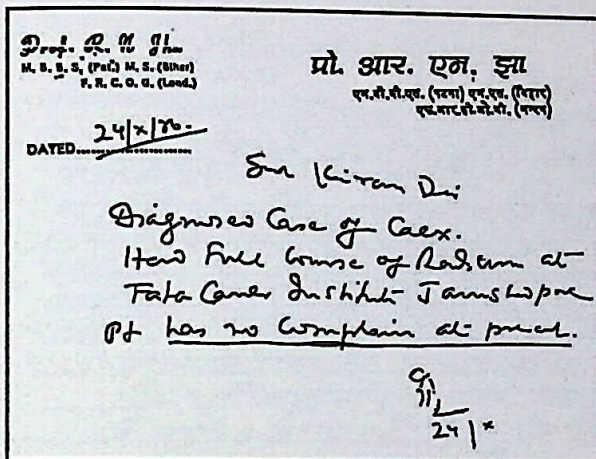 Prof. R. N. Jha
M. B. B. S. (Pat.) M. S. (Bihar)
F. R. C. O. G. (Lond.)
प्रो. आर. एन. झा
एम.बी.बी.एस. (पटना) एम.एस. (बिहार)
एफ.आर.सी.ओ.जी. (लन्दन)
DATED 24/x/
Kiran
Diagnosed Case of Caex.
Had Full Course of at
Tata Cancer Institute
Pt has no Complain at present.
24/x